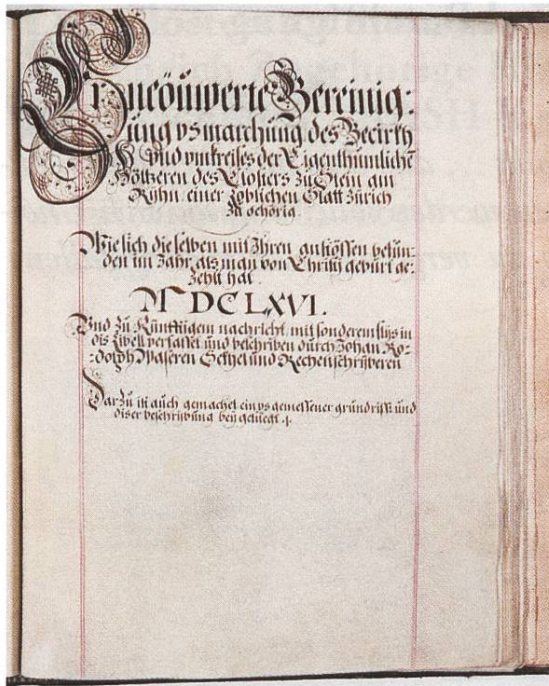 Ernöüwerte Bereinig:
ung vsmarchung des Becirks
Vnd vmkreises der Eigenthümlichē
Höltzeren des Closters zu Stein am
Rhÿn einer Loblichen Statt Zürich
Zu gehörig
Wie sich die selben mit Ihren anstössen befun-
den im Jahr als man von Christi geburt ge-
zehlt hat
M DCLXVI.
Vnd zu Künfftigem nachricht mit sonderem flÿs in
dis Libell verfasset und beschriben durch Johan Ro-
dolph Waseren Sekhel und Rechenschrÿberen
Dar zu ist auch gemachet ein vs gemessener grundriss und
diser beschrÿbung beÿ gefuegt